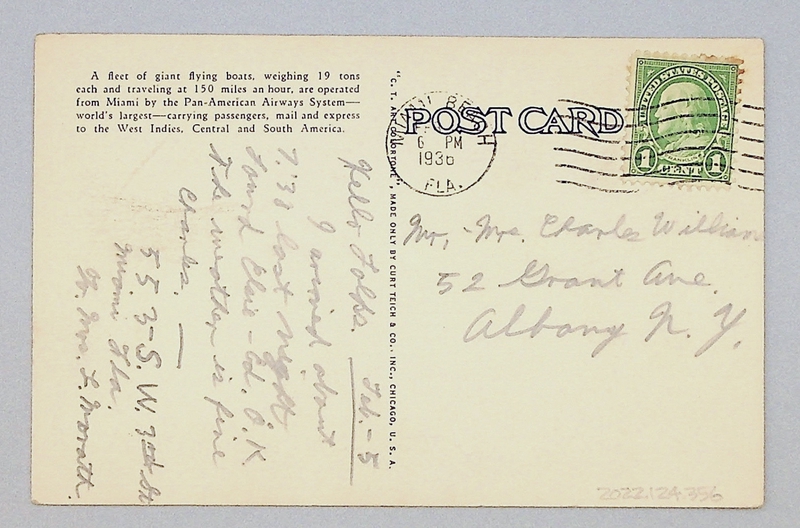 A fleet of giant flying boats, weighing 19 tons
each and traveling at 150 miles an hour, are operated
from Miami by the Pan-American Airways System—
world's largest—carrying passengers, mail and express
to the West Indies, Central and South America.
"C. T. ART-COLORTONE", MADE ONLY BY CURT TEICH & CO., INC., CHICAGO, U. S. A.
POST CARD
MIAMI BEACH
6 PM
1936
FLA.
UNITED STATES POSTAGE
FRANKLIN
1 CENT 1
Feb. - 5
Hello Folks.
I arrived about
7,30 last night
found Elsie - Ed. O.K.
& the weather is fine
Charles.
553 - S. W. 3rd St
Miami Fla.
% Mrs. L. Morath.
Mr. - Mrs. Charles William
52 Grant Ave.
Albany N. Y.
2022.124.356